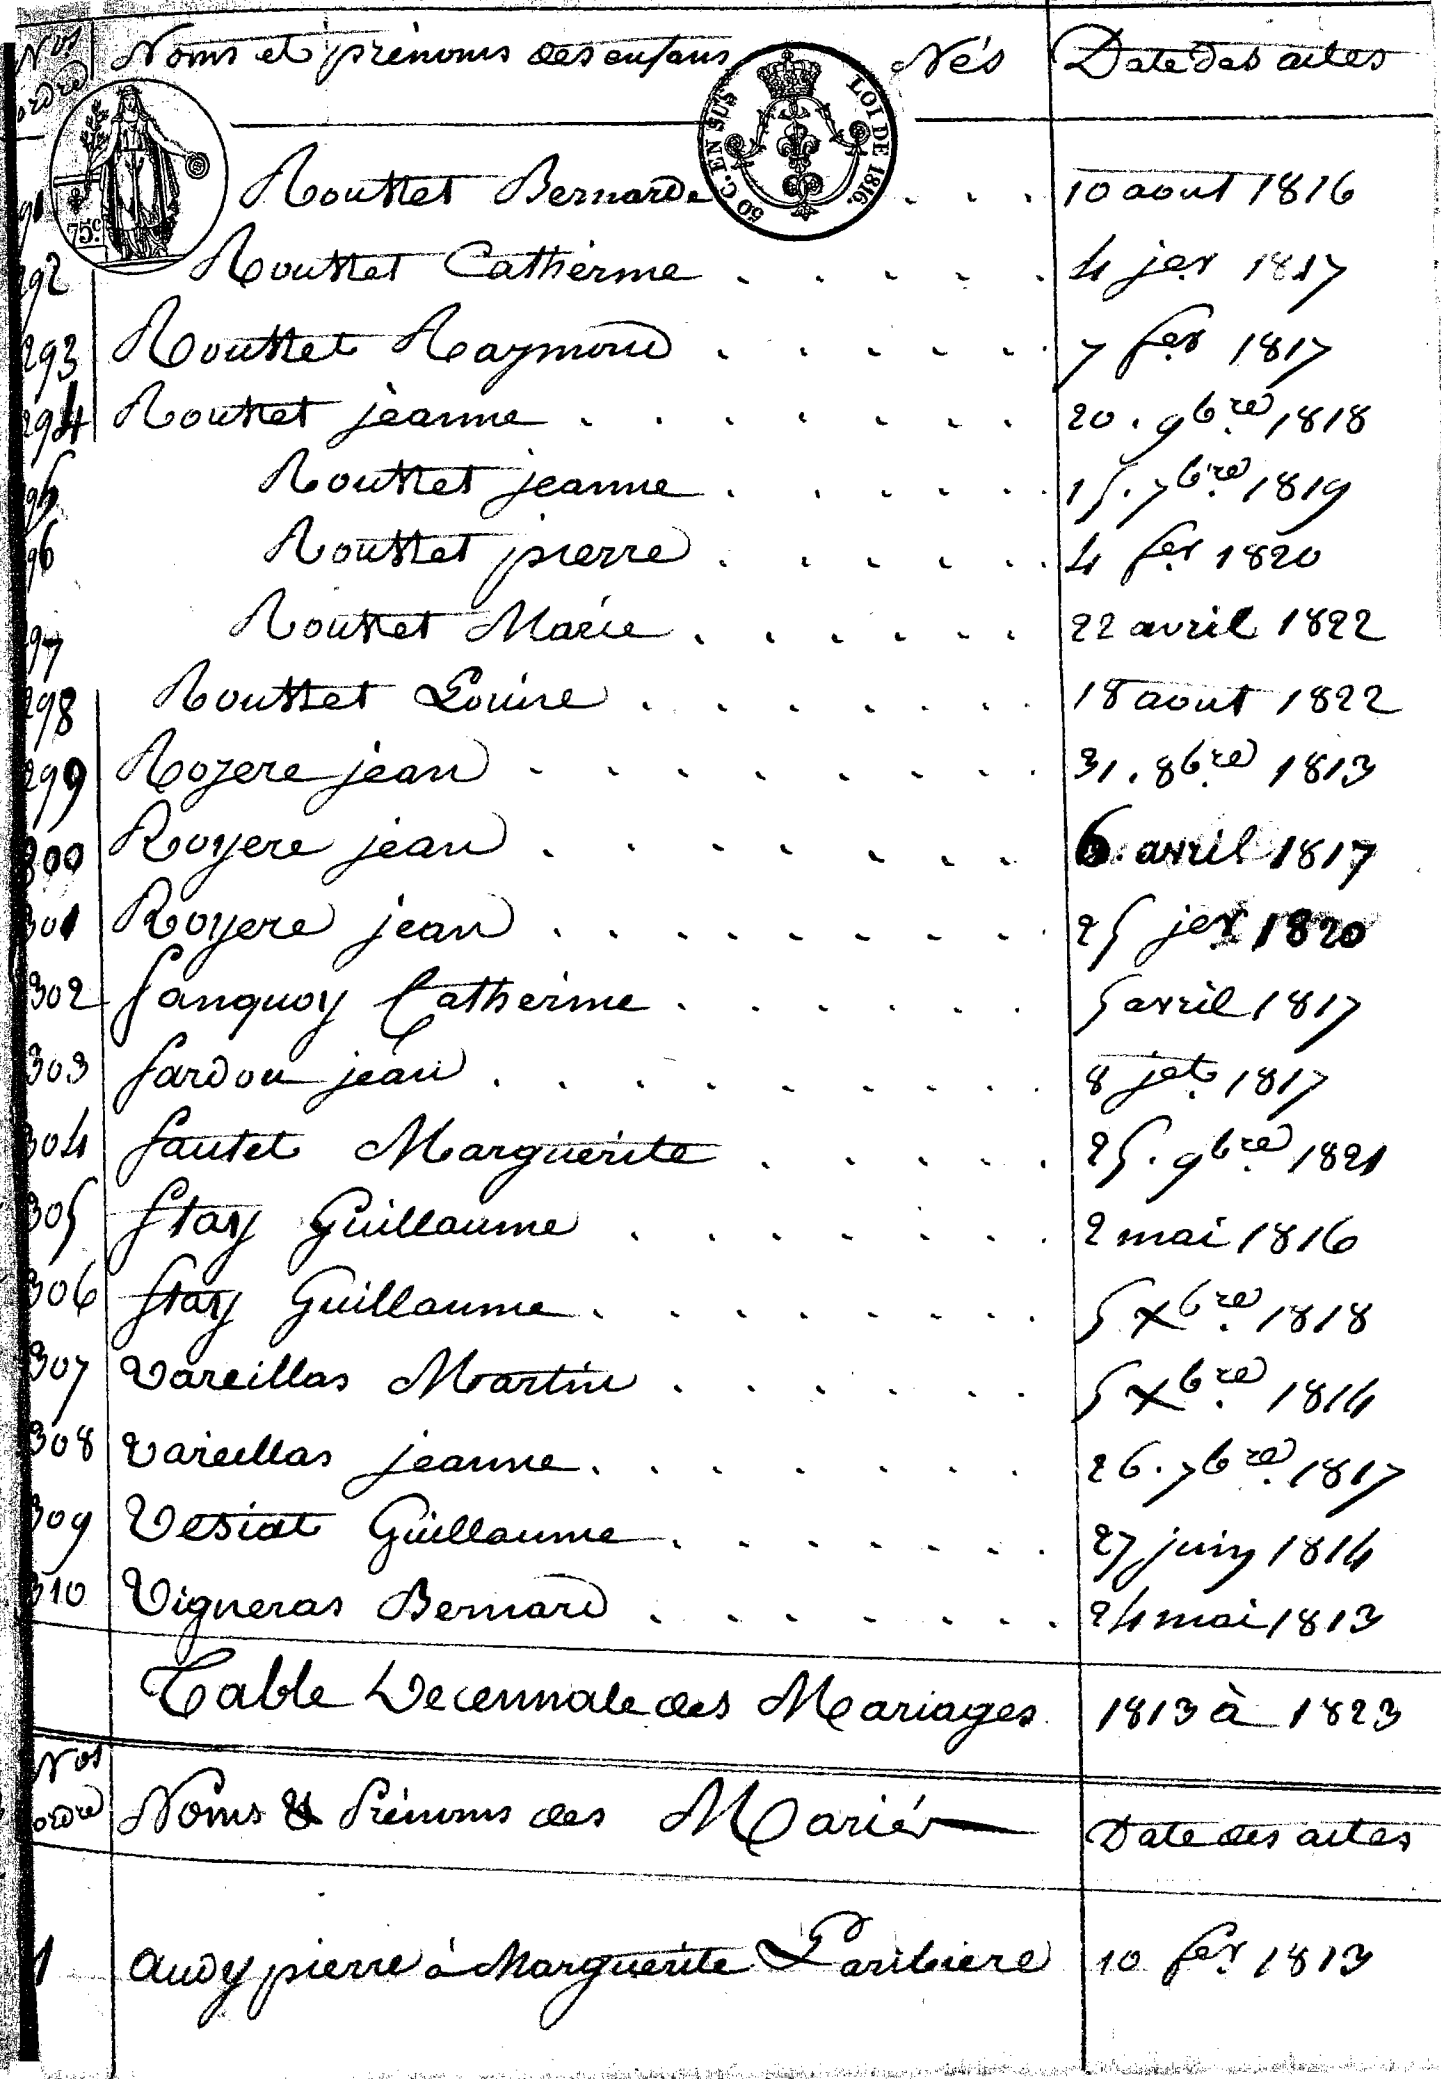 Nos ordre Noms et prénoms des enfans Nés Date des actes
50 C. EN SUS LOI DE 1816.
75c
291 Routtet Bernarde 10 aout 1816
292 Routtet Catherine 4 jer 1817
293 Routtet Raymond 7 fer 1817
294 Routtet jeanne 20. 9bre 1818
295 Routtet jeanne 15. 7bre 1819
296 Routtet pierre 4 fer 1820
297 Routtet Marie 22 avril 1822
298 Routtet Louise 18 aout 1822
299 Rozere jean 31. 8bre 1813
300 Royere jean 6 avril 1817
301 Royere jean 25 jer 1820
302 Sanquoy Catherine 5 avril 1817
303 Sardou jean 8 jet 1817
304 Sautet Marguerite 25. 9bre 1821
305 Stay Guillaume 2 mai 1816
306 Stay Guillaume 5 Xbre 1818
307 Vareillas Martin 5 Xbre 1814
308 Vareillas jeanne 26. 7bre 1817
309 Vesiat Guillaume 27 juin 1814
310 Vigneras Bernard 24 mai 1813
Table Decennale des Mariages 1813 à 1823
Nos ordre Noms & Prénoms des Mariés Date des actes
1 Audy pierre à Marguerite 10 fer 1813